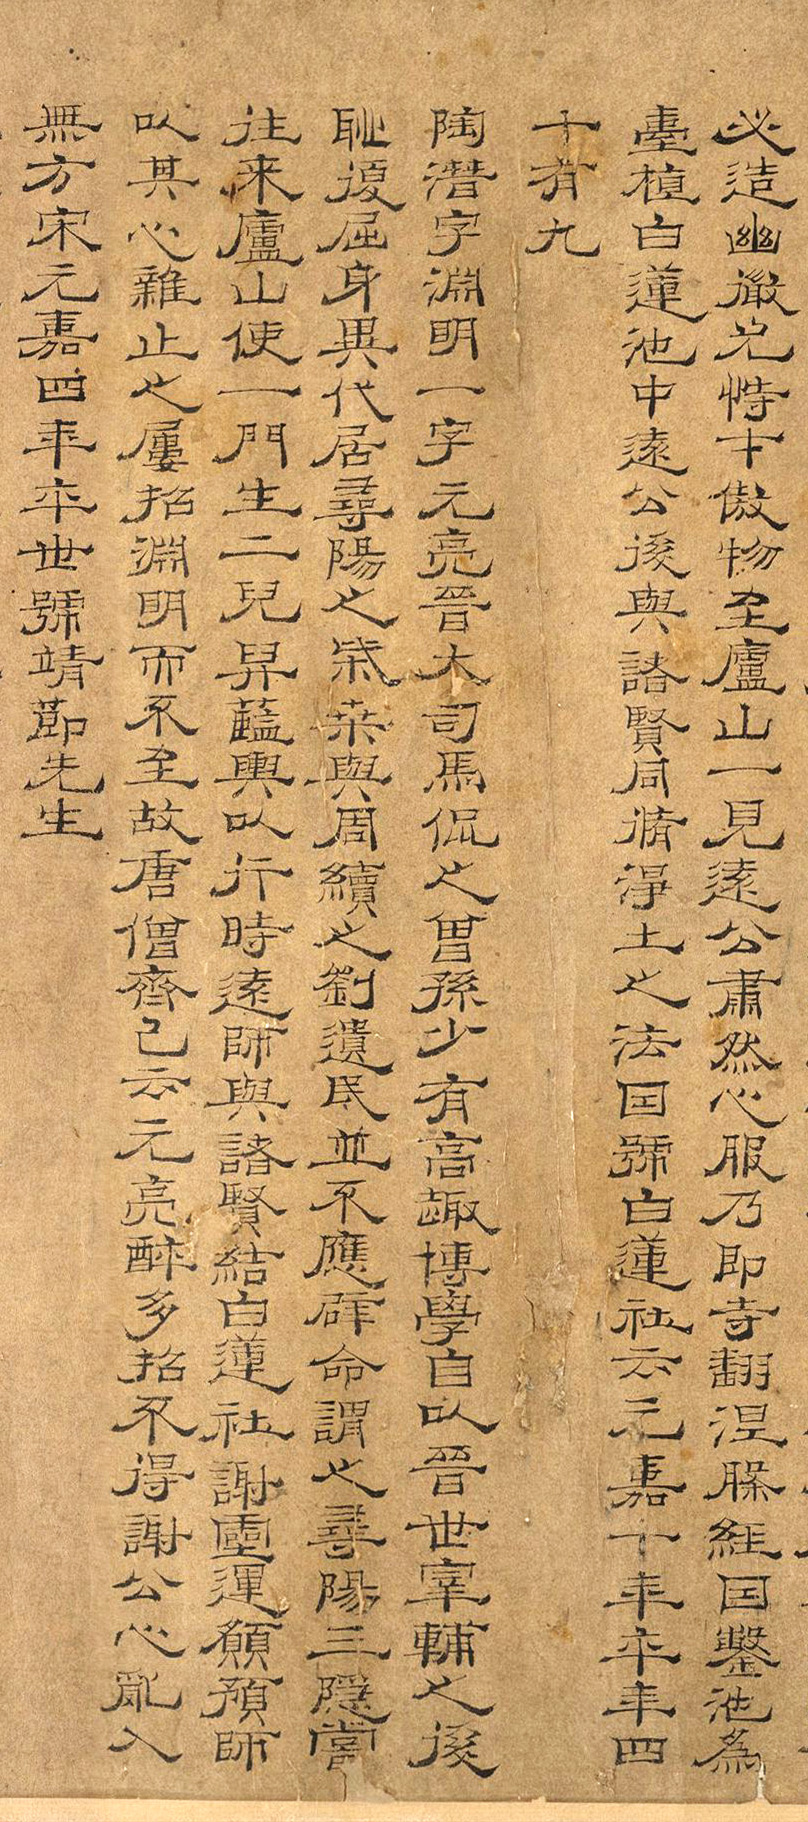 必造幽徽先恃才傲物至廬山一見遠公肅然心服乃即寺翻涅槃經因鑿池為
臺植白蓮池中遠公後與諸賢同脩淨土之法因號白蓮社云元嘉十年卒年四
十有九
陶潛字淵明一字元亮晉大司馬侃之曾孫少有高趣博學自以晉世宰輔之後
恥復屈身異代居尋陽之柴桒與周續之劉遺民並不應辟命謂之尋陽三隱嘗
往来廬山使一門生二兒舁藍輿以行時遠師與諸賢結白蓮社謝靈運願預師
以其心雜止之屢招淵明而不至故唐僧齊己云元亮醉多招不得謝公心亂入
無方宋元嘉四年卒世號靖節先生